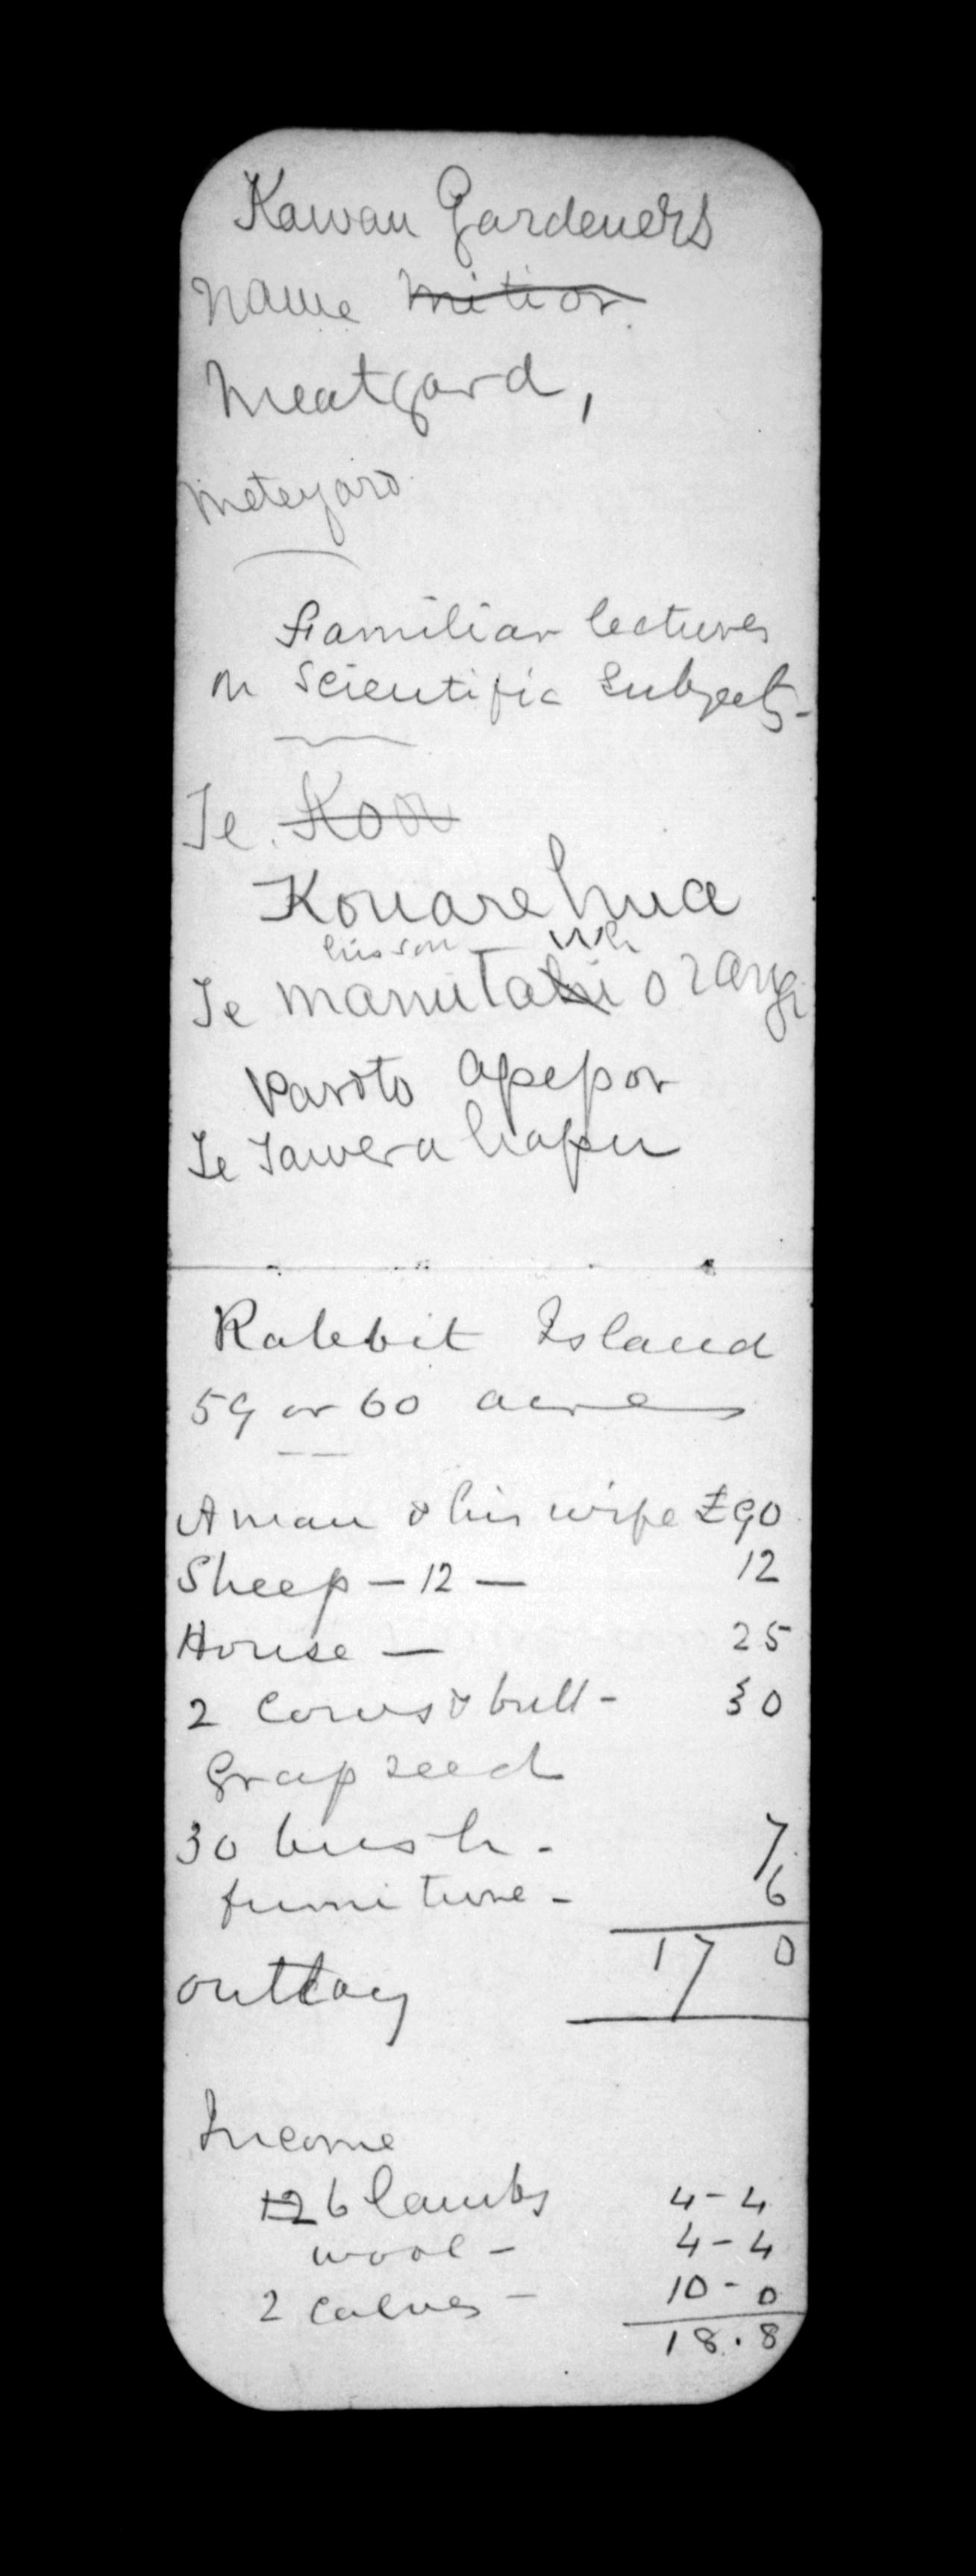 Kawau Gardeners
Name Mitior
Meatyard,
Meteyard
Familiar lectures
on Scientific Subjects-
Te Koa
Kouarehua
his son
Te Manutahi o rangi
Paroto Apepor
Te Tawera hapu
Rabbit Island
59 or 60 acres
A man & his wife £90
Sheep - 12 - 12
House - 25
2 Cows & bull - 30
Grap seed
30 bush - 7
furniture - 6
170
outlay
Income
12 6 lambs 4-4
wool - 4-4
2 calves - 10-0
18.8